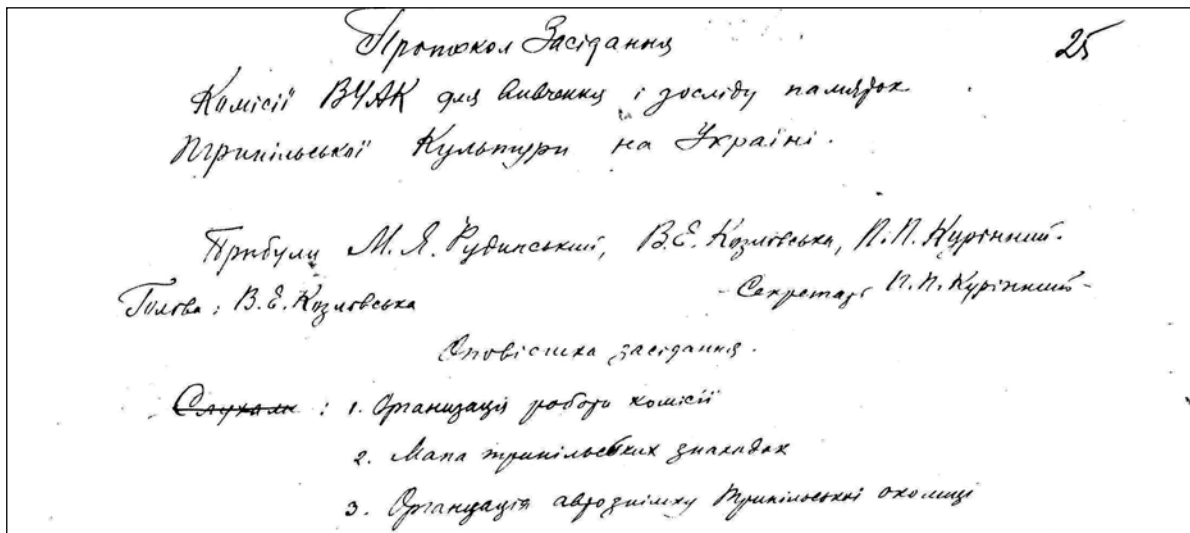 25
Протокол Засідання
Комісії ВУАК для вивчення і досліду памяток
Трипільської Культури на Україні.
Прибули М. Я. Рудинський, В. Е. Козловська, П. П. Курінний.
Голова: В. Е. Козловська - Секретарь П. П. Курінний -
Оповістка засідання.
Слухали : 1. Организація роботи комісії
2. Мапа трипільських знахадок
3. Організація аерознімку Трипільської околиці